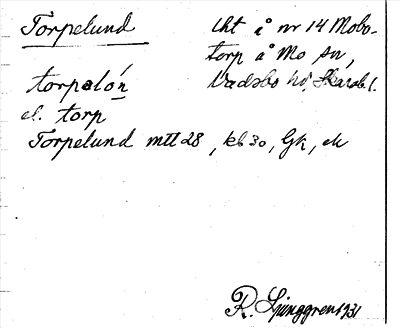 Torpelund
lht å nr 14 Mobo-
torp å Mo sn,
Vadsbo hd, Skarab. l.
torpelón
el. torp
Torpelund mtl 28, kb 30, Gk, ek
R. Ljunggren 1931